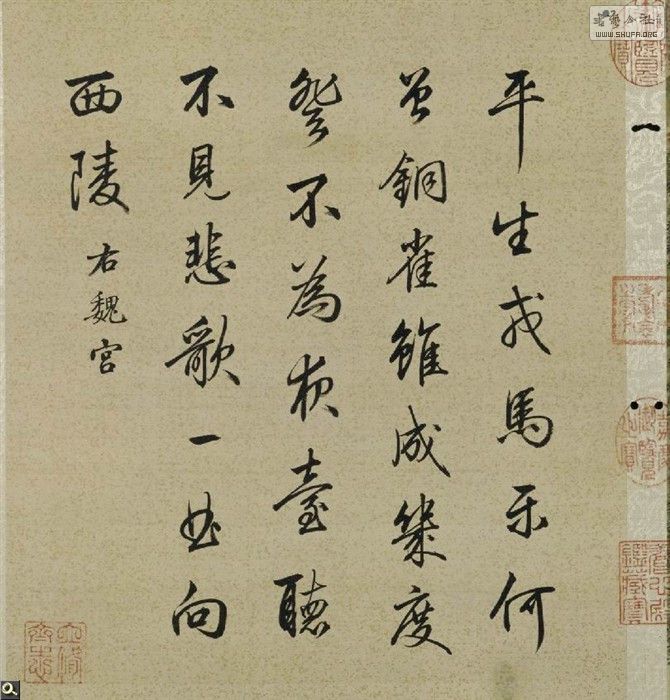 平生戎馬樂何
曾銅雀雖成幾度
登不為夜臺聽
不見悲歌一曲向
西陵 右魏宮
WWW.SHUFA.ORG